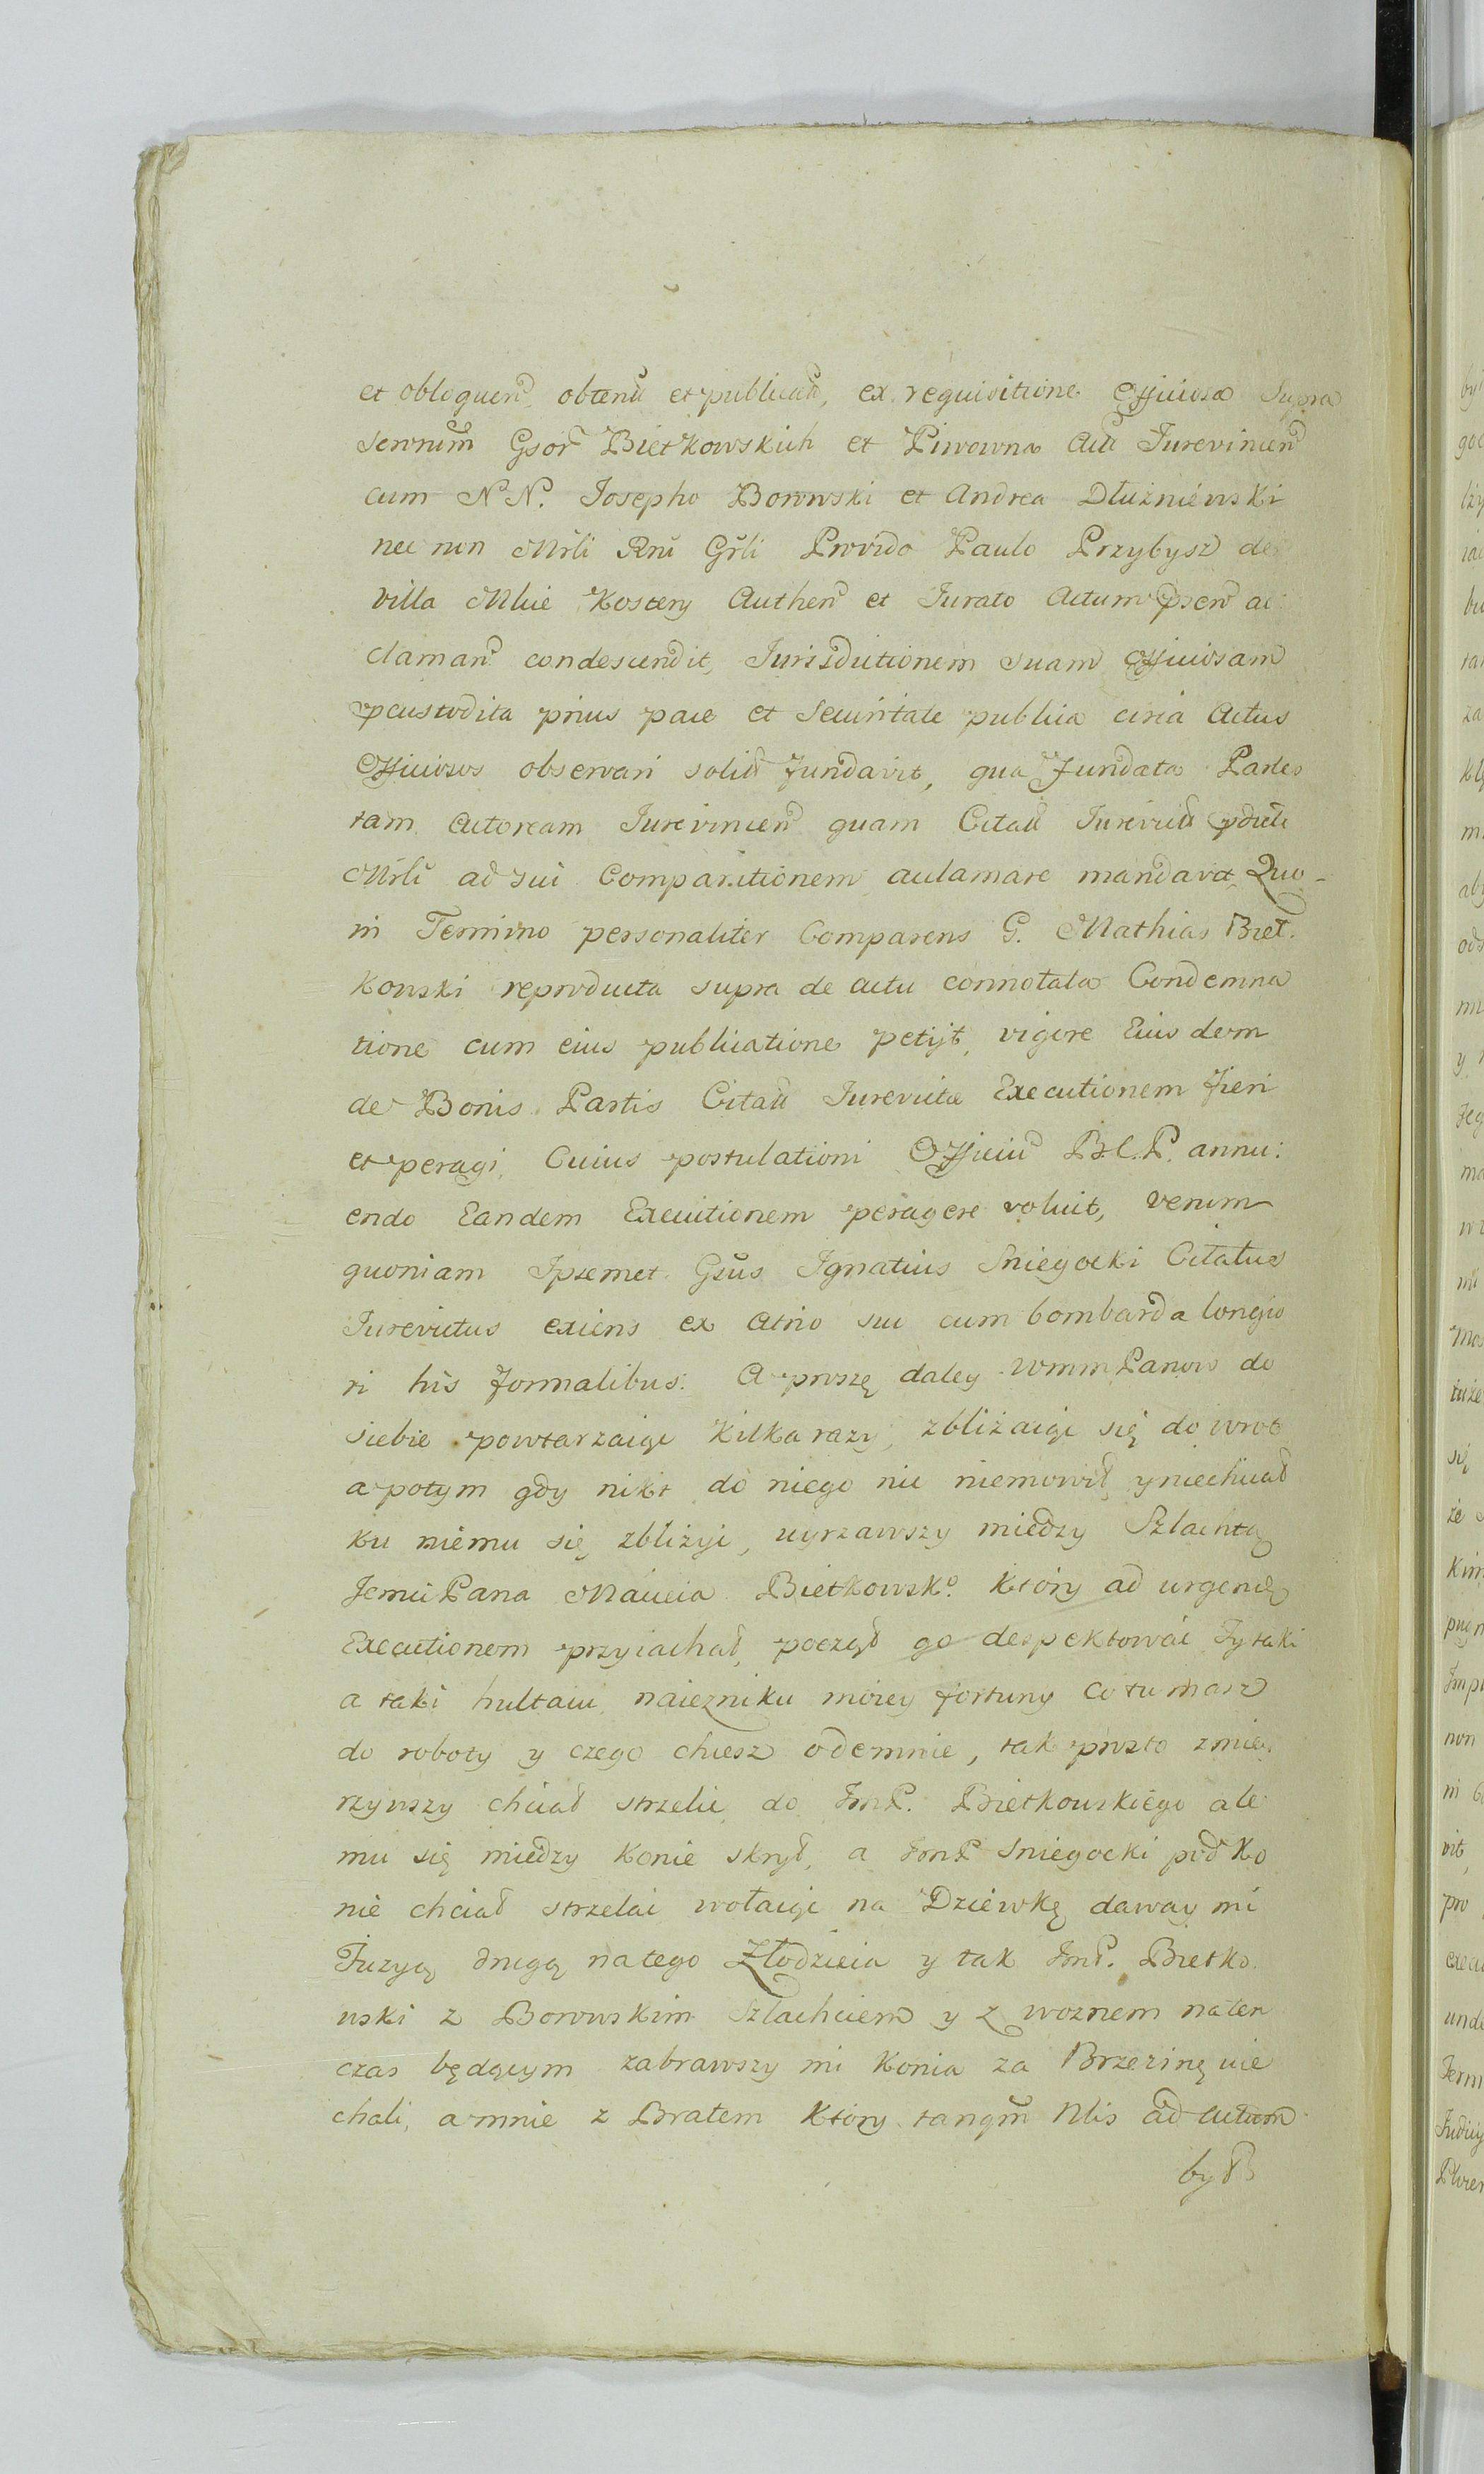 et obloquen obtenũ et publicatũ, ex requisitione Officiosa Supra
scriptorum Gsor Bietkowskich et Piwowna Actũ Jurevincen
cum N N. Josepho Borowski et Andrea Dłużniewski
nec non Mrli Rni Grli Provido Paulo Przybysz de
villa Mlue Kostery Authen et Jurato Actum psen ac
claman condescendit, Jurisdictionem suam Officiosam
pcustodita prius pace et Securitate publica circa Actus
Officiosos observari solitũ fundavit, qua fundata Partes
tam Actoream Jurevincen quam Citatũ Jurevictũ pdicti
Mrli ad sui Comparitionem aclamare mandavit, Quo
in Termino personaliter Comparens G. Mathias Biet.
kowski reproducta supra de actu connotata Condemna
tione cum eius publicatione petijt, vigore Eius dem
de Bonis Partis Citatũ Jurevictæ Executionem fieri
et peragi, Cuius postulationi Officiũ B.C.P. annu:
endo Eandem Executionem peragere voluit, verum
quoniam Ipsemet Gsũs Ignatius Sniegocki Citatus
Jurevictus exiens ex Atrio sui cum bombarda longio
ri his formalibus: A proszę daley WmmPanow do
siebie powtarzaiąc kilka razy, zbliżaiąc się do wrot
a potym gdy nikt do niego nic niemowił, y niechciał
ku niemu się zbliżyć, uyrzawszy między Szlachtą
JemciPana Macieia Bietkowsk⁰. który ad urgendą
Executionem przyiachał, począł go despektować Ty taki
a taki hultaiu, naiezniku moiey fortuny co tu masz
do roboty y czego chcesz odemnie, tak prosto zmie,
rzywszy chciał strzelić do ImP. Bietkowskiego ale
mu się między konie skrył, a ImP Sniegocki pod ko
nie chciał strzelać wołaiąc na Dziewkę daway mi
Fuzyą drugą na tego Złodzieia y tak ImP. Bietko
wski z Borowskim Szlachcicem y z woznem naten
czas będącym zabrawszy mi konia za Brzezinę uie
chali, a mnie z Bratem który tanqm Nlis ad actum
był